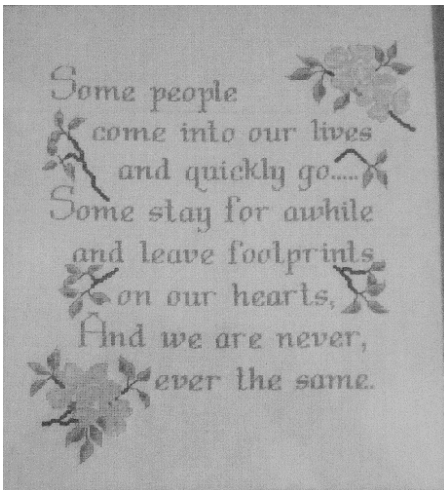 Some people
come into our lives
and quickly go.....
Some stay for awhile
and leave footprints
on our hearts,
And we are never,
ever the same.